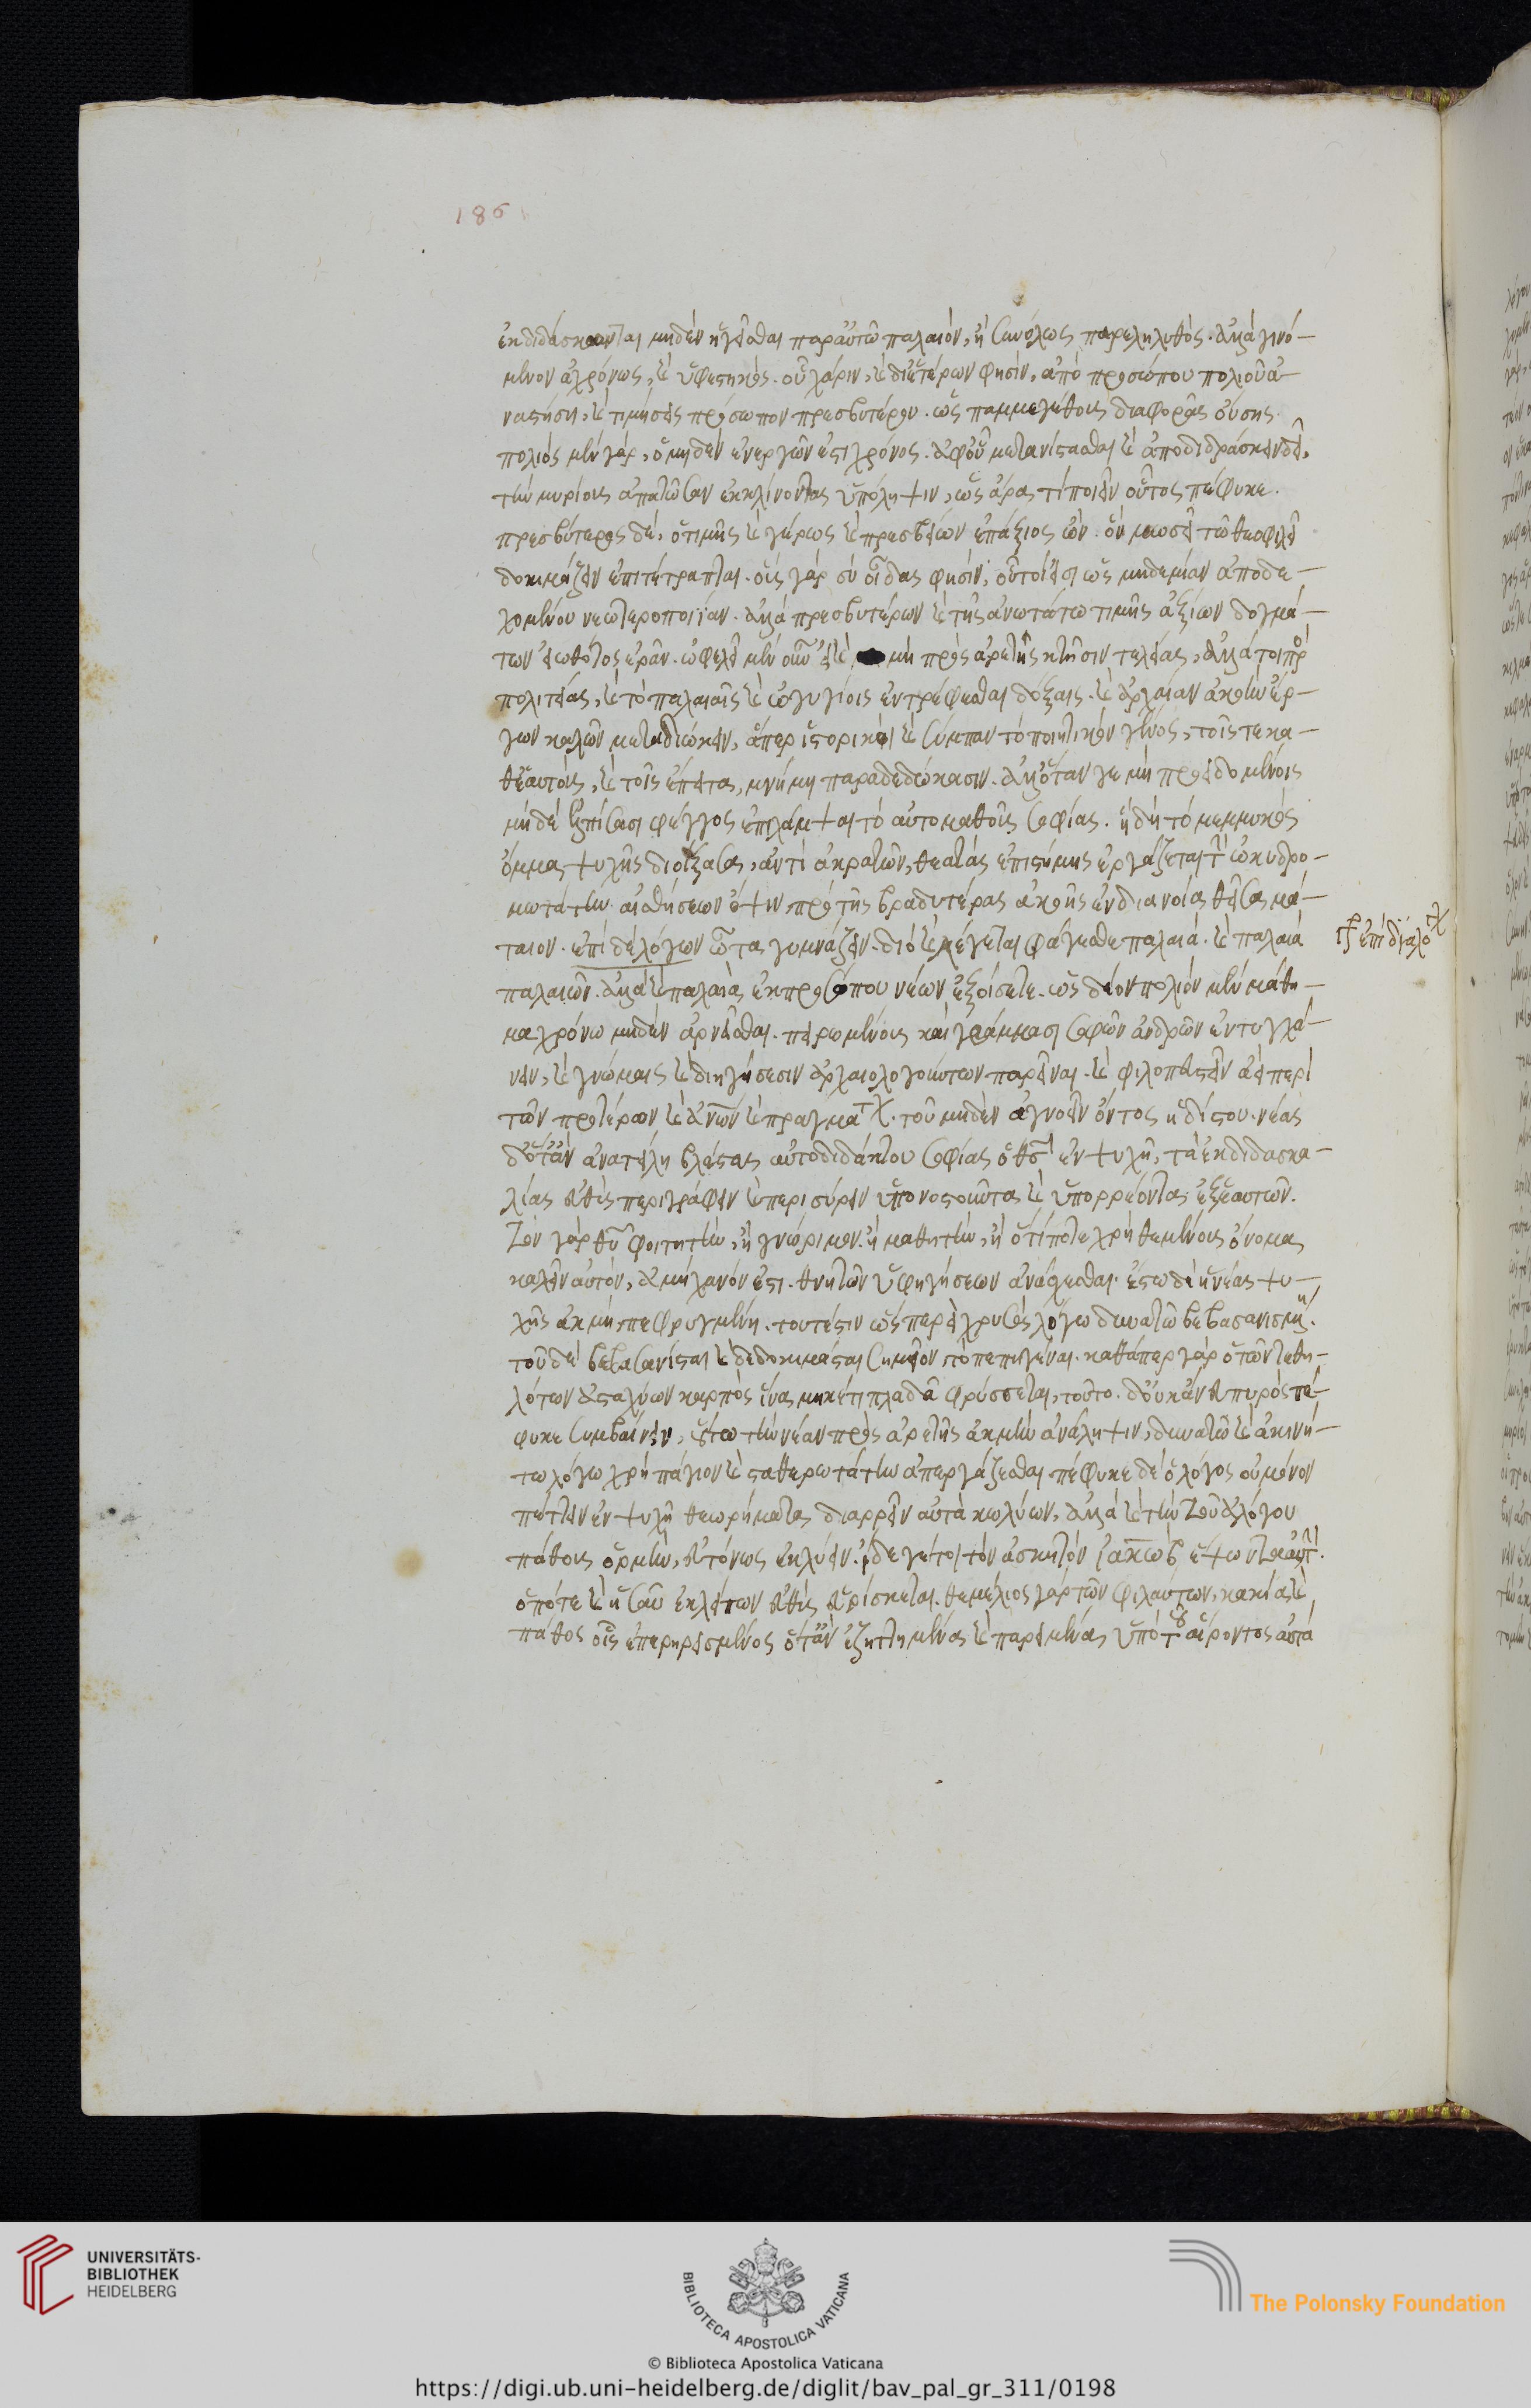 186
ἐκδιδάσκονται μηδὲν ἡγεῖσθαι παρ' αὐτῷ παλαιὸν, ἢ συνόλως παρεληλυθὸς. ἀλλὰ γινό-
μενον ἀχρόνως, καὶ ὑφεστηκός. οὗ χάριν, καὶ δι' ἑτέρων φησὶν, ἀπὸ προσώπου πολιοῦ ἀ-
ναστήσῃ, καὶ τιμήσεις πρόσωπον πρεσβυτέρου. ὡς παμμεγέθους διαφορᾶς οὔσης.
πολιὸς μὲν γάρ, ὁ μηδὲν ἐνεργῶν ἐστι χρόνος. ἀφ' οὗ μετανίστασθαι καὶ ἀποδιδράσκειν δεῖ,
τὴν μυρίους ἀπατῶσαν ἐκκλίνοντας ὑπόληψιν, ὡς ἄρα τὶ ποιεῖν οὗτος πέφυκε.
πρεσβύτερος δέ, ὁ τιμῆς καὶ γέρως καὶ πρεσβείων ἐπάξιος ὤν. ὃν μωσεῖ τῷ θεοφιλεῖ
δοκιμάζειν ἐπιτέτραπται. οὓς γὰρ σὺ οἶδας φησὶν, οὗτοί εἰσι ὡς μηδεμίαν ἀποδε-
χομένου νεωτεροποιίαν. ἀλλὰ πρεσβυτέρων καὶ τῆς ἀνωτάτω τιμῆς ἀξίων δογμά-
των εἰωθότος ἐρᾶν. ὠφελεῖ μὲν οὖν εἰ καὶ μὴ πρὸς ἀρετῆς κτῆσιν τελείας, ἀλλά τοι πρὸς
πολιτείας, καὶ τὸ παλαιαῖς καὶ ὠγυγίοις ἐντρέφεσθαι δόξαις. καὶ ἀρχαίαν ἀκοὴν ἔρ-
γων καλῶν μεταδιώκειν, ἅπερ ἱστορικοὶ καὶ σύμπαν τὸ ποιητικὸν γένος, τοῖς τε κα-
θ' ἑαυτοὺς, καὶ τοῖς ἔπειτα, μνήμῃ παραδεδώκασιν. ἀλλ' ὅταν γε μὴ προειδομένοις
μὴ δὲ ἐλπίσασι φέγγος ἐπιλάμψαι τὸ αὐτομαθοῦς σοφίας. ἣ δὴ τὸ μεμυκὸς
ὄμμα ψυχῆς διοίξασα, ἀντὶ ἀκροατῶν, θεατὰς ἐπιστήμης ἐργάζεται τὴν ὠκυδρο-
μωτάτην αἰσθήσεων ὄψιν, πρὸ τῆς βραδυτέρας ἀκοῆς ἐν διανοίᾳ θεῖσα μά-
ταιον. ἐπὶ δὲ λόγων ὦτα γυμνάζειν. διὸ καὶ λέγεται φάγεσθε παλαιά. καὶ παλαιὰ
παλαιῶν. ἀλλὰ καὶ παλαιὰ, ἐκ προσώπου νέων ἐξοίσετε. ὡς δέον πολιὸν μὲν μάθη-
μα χρόνῳ μηδὲν ἀρνεῖσθαι. πειρωμένους καὶ γράμμασι σοφῶν ἀνδρῶν ἐντυγχά-
νειν, καὶ γνώμαις καὶ διηγήσεσιν ἀρχαιολογούντων παρεῖναι. καὶ φιλοπευστεῖν ἀεὶ περὶ
τῶν προτέρων καὶ ἀνῶν καὶ πραγμάτων. τοῦ μηδὲν ἀγνοεῖν ὄντος ἡδίστου. νέας
δ' ὅταν ἀνατείλῃ βλάστας αὐτοδιδάκτου σοφίας ὁ θεὸς ἐν ψυχῇ, τὰ ἐκ διδασκα-
λίας εὐθὺς περιγράφειν καὶ περισύρειν ὑπονοστοῦντα καὶ ὑπορρέοντα ἐξ ἑαυτῶν.
τὸν γὰρ θεοῦ φοιτητὴν, ἢ γνώριμον. ἢ μαθητὴν, ἢ ὅτί ποτε χρὴ θεμένους ὄνομα
καλεῖν αὐτὸν, ἀμήχανόν ἐστι. θνητῶν ὑφηγήσεων ἀνάσχεσθαι. ἔστω δὲ ἡ νέας ψυ-
χῆς ἀκμὴ πεφρυγμένη. τουτέστιν ὥσπερ εἰ χρυσὸς λόγῳ δυνατῷ βεβασανισμένη.
τοῦ δὲ βεβασανίσται καὶ δεδοκιμάσται σημεῖον τὸ πεπηγέναι. καθάπερ γὰρ ὁ τῶν τεθη-
λότων ἀσταχύων καρπὸς ἵνα μηκέτι πλαδᾷ φρύσσεται, τοῦτο. δ' οὐκ ἄνευ πυρὸς πέ-
φυκε συμβαίνειν, οὕτω τὴν νέαν πρὸς ἀρετῆς ἀκμὴν ἀνάληψιν, δυνατῷ καὶ ἀκινή-
τῳ λόγῳ χρὴ πάγιον καὶ σταθερωτάτην ἀπεργάζεσθαι πέφυκε δὲ ὁ λόγος οὐ μόνον
πήττειν ἐν ψυχῇ θεωρήματα διαρρεῖν αὐτὰ κωλύων, ἀλλὰ καὶ τὴν τοῦ ἀλόγου
πάθους ὁρμὴν, εὐτόνως ἐκλύειν. ἴδε γέ τοι τὸν ἀσκητὸν ἰακωβ ἕψοντα αὐτὸ.
ὁπότε καὶ ἡσαῦ ἐκλείπων εὐθὺς εὑρίσκεται. θεμέλιος γὰρ τῶν φιλαύτων, κακία καὶ
πάθος οἷς ἐπερηρεισμένος ὅταν ἐξηττημένα καὶ παρειμένα, ὑπὸ τοῦ αἴροντος αὐτὰ
ἐπὶ διαλό
UNIVERSITÄTS-
BIBLIOTHEK
HEIDELBERG
BIBLIOTECA APOSTOLICA VATICANA
© Biblioteca Apostolica Vaticana
The Polonsky Foundation
https://digi.ub.uni-heidelberg.de/diglit/bav_pal_gr_311/0198